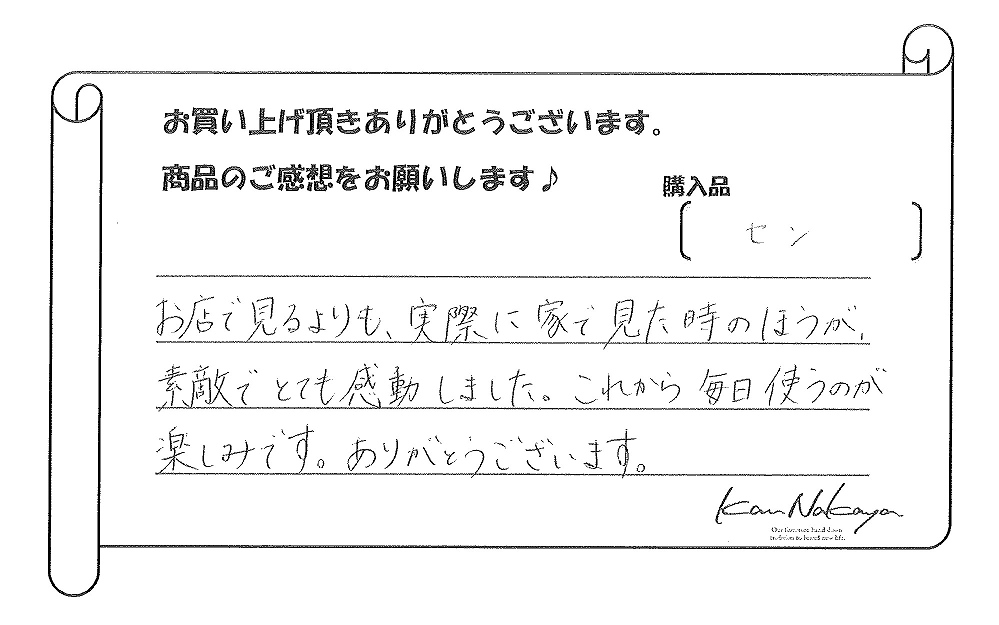 お買い上げ頂きありがとうございます。
商品のご感想をお願いします♪
購入品
セン
お店で見るよりも、実際に家で見た時のほうが、
素敵でとても感動しました。これから毎日使うのが
楽しみです。ありがとうございます。
Kan Nakaya